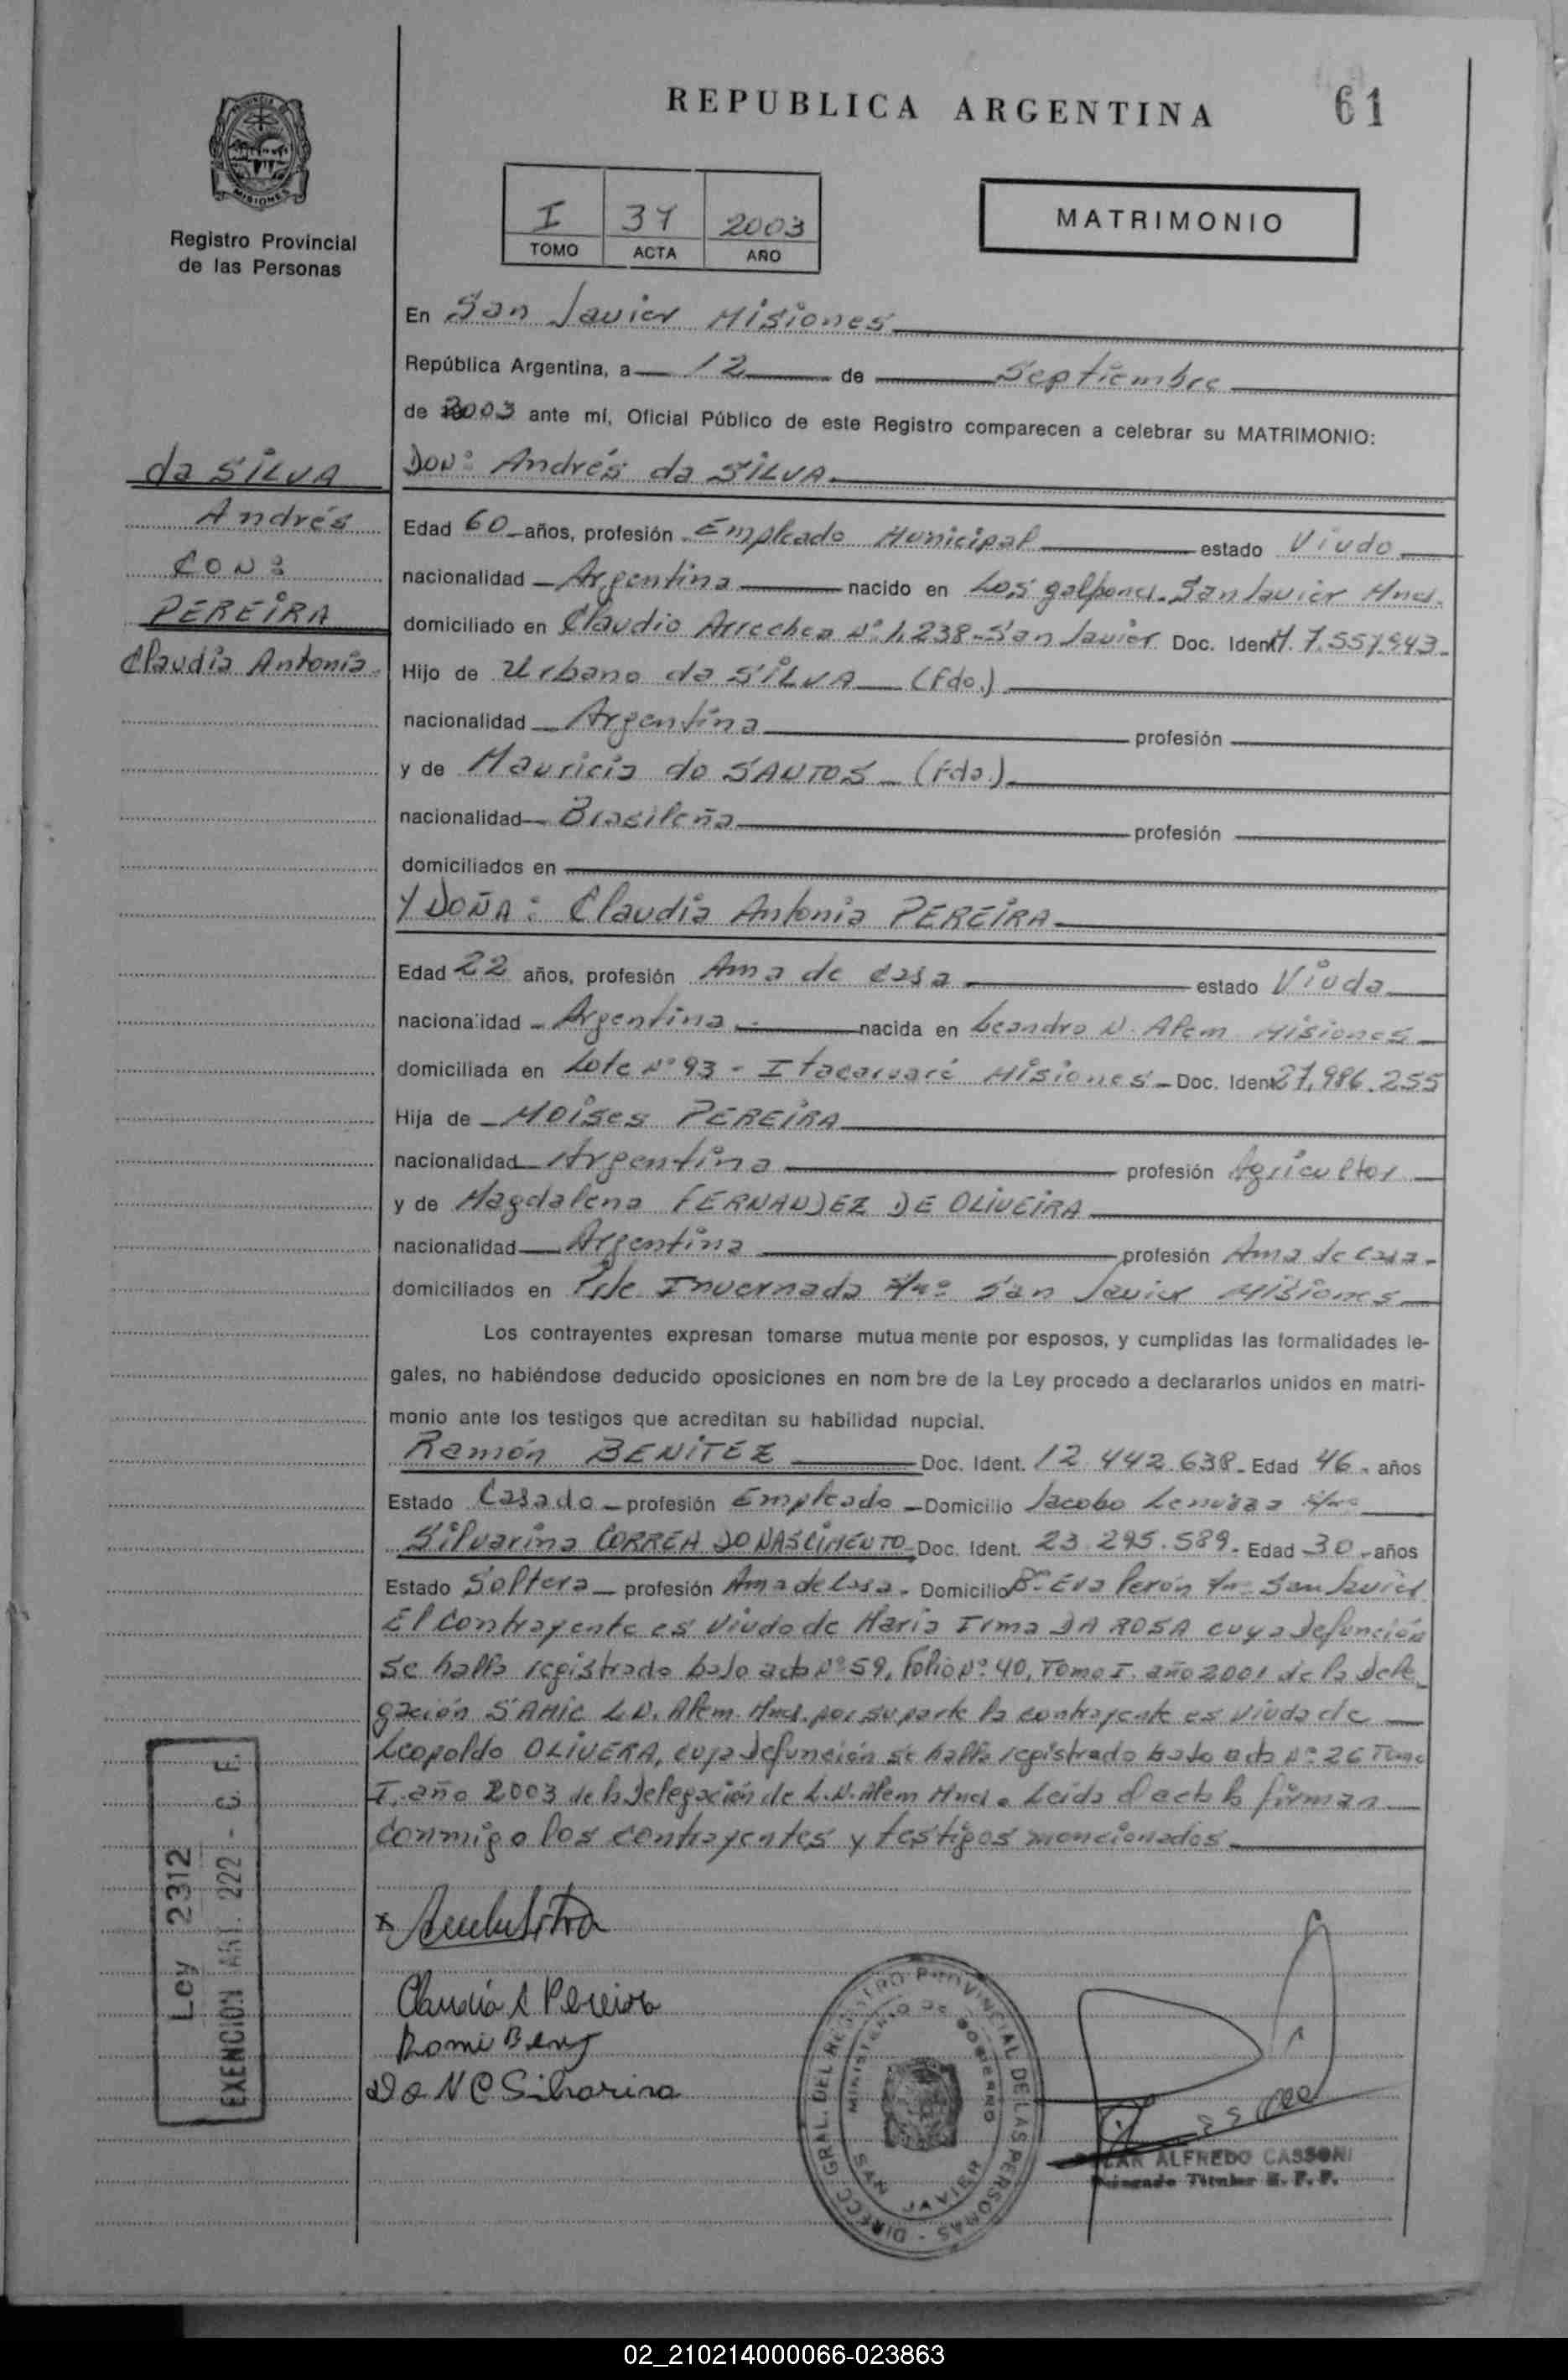 REPUBLICA ARGENTINA
61
MISIONES
Registro Provincial
de las Personas
I 37 2003
TOMO ACTA AÑO
MATRIMONIO
En San Javier Misiones
República Argentina, a 12 de Septiembre
de 2003 ante mí, Oficial Público de este Registro comparecen a celebrar su MATRIMONIO:
da SILVA
Andrés
CON:
PEREIRA
Claudia Antonia.
DON: Andrés da SILVA
Edad 60 años, profesión Empleado Municipal estado Viudo
nacionalidad Argentina nacido en Los galpones. San Javier Mnes.
domiciliado en Claudio Arrechea Nº 1.238-San Javier Doc. Ident M. 7.557.943-
Hijo de Urbano da SILVA (fdo.)
nacionalidad Argentina profesión
y de Mauricia do SANTOS (fda.)
nacionalidad Brasileña profesión
domiciliados en
Y DOÑA: Claudia Antonia PEREIRA
Edad 22 años, profesión Ama de casa estado Viuda
nacionalidad Argentina nacida en Leandro N. Alem Misiones
domiciliada en Lote Nº 93 - Itacaruaré Misiones - Doc. Ident 27.986.255
Hija de Moises PEREIRA
nacionalidad Argentina profesión Agricultor
y de Magdalena FERNANDEZ DE OLIVEIRA
nacionalidad Argentina profesión Ama de casa-
domiciliados en Pje Invernada s/nº San Javier Misiones
Los contrayentes expresan tomarse mutua mente por esposos, y cumplidas las formalidades le-
gales, no habiéndose deducido oposiciones en nom bre de la Ley procedo a declararlos unidos en matri-
monio ante los testigos que acreditan su habilidad nupcial.
Ramón BENITEZ Doc. Ident. 12.442.638- Edad 46- años
Estado Casado profesión Empleado Domicilio Jacobo s/nº
Silvarina CORREA DO NASCIMENTO Doc. Ident. 23.295.589- Edad 30 años
Estado Soltera profesión Ama de Casa. Domicilio Bº Eva Perón s/nº San Javier
El contrayente es viudo de Maria Irma DA ROSA cuya defunción
se halla registrado bajo acta Nº 59, Folio Nº 40, Tomo I. año 2001 de la dele
gación SAMIC L.N. Alem. Mnes. por su parte la contrayente es viuda de
Leopoldo OLIVERA, cuya defunción se halla registrado bajo acta Nº 26 Tomo
I. año 2003 de la Delegación de L.N. Alem Mnes. Leida el acta la firman
conmigo los contrayentes y testigos mencionados
Ley 2312
EXENCION ART. 222 - C. F.
Claudia A Pereira
DO N C Silvarina
DIRECC. GRAL. DEL REGISTRO PROVINCIAL DE LAS PERSONAS
MINISTERIO DE GOBIERNO
SAN JAVIER
ALFREDO CASSONI
Delegado Titular R. P. P.
02_210214000066-023863